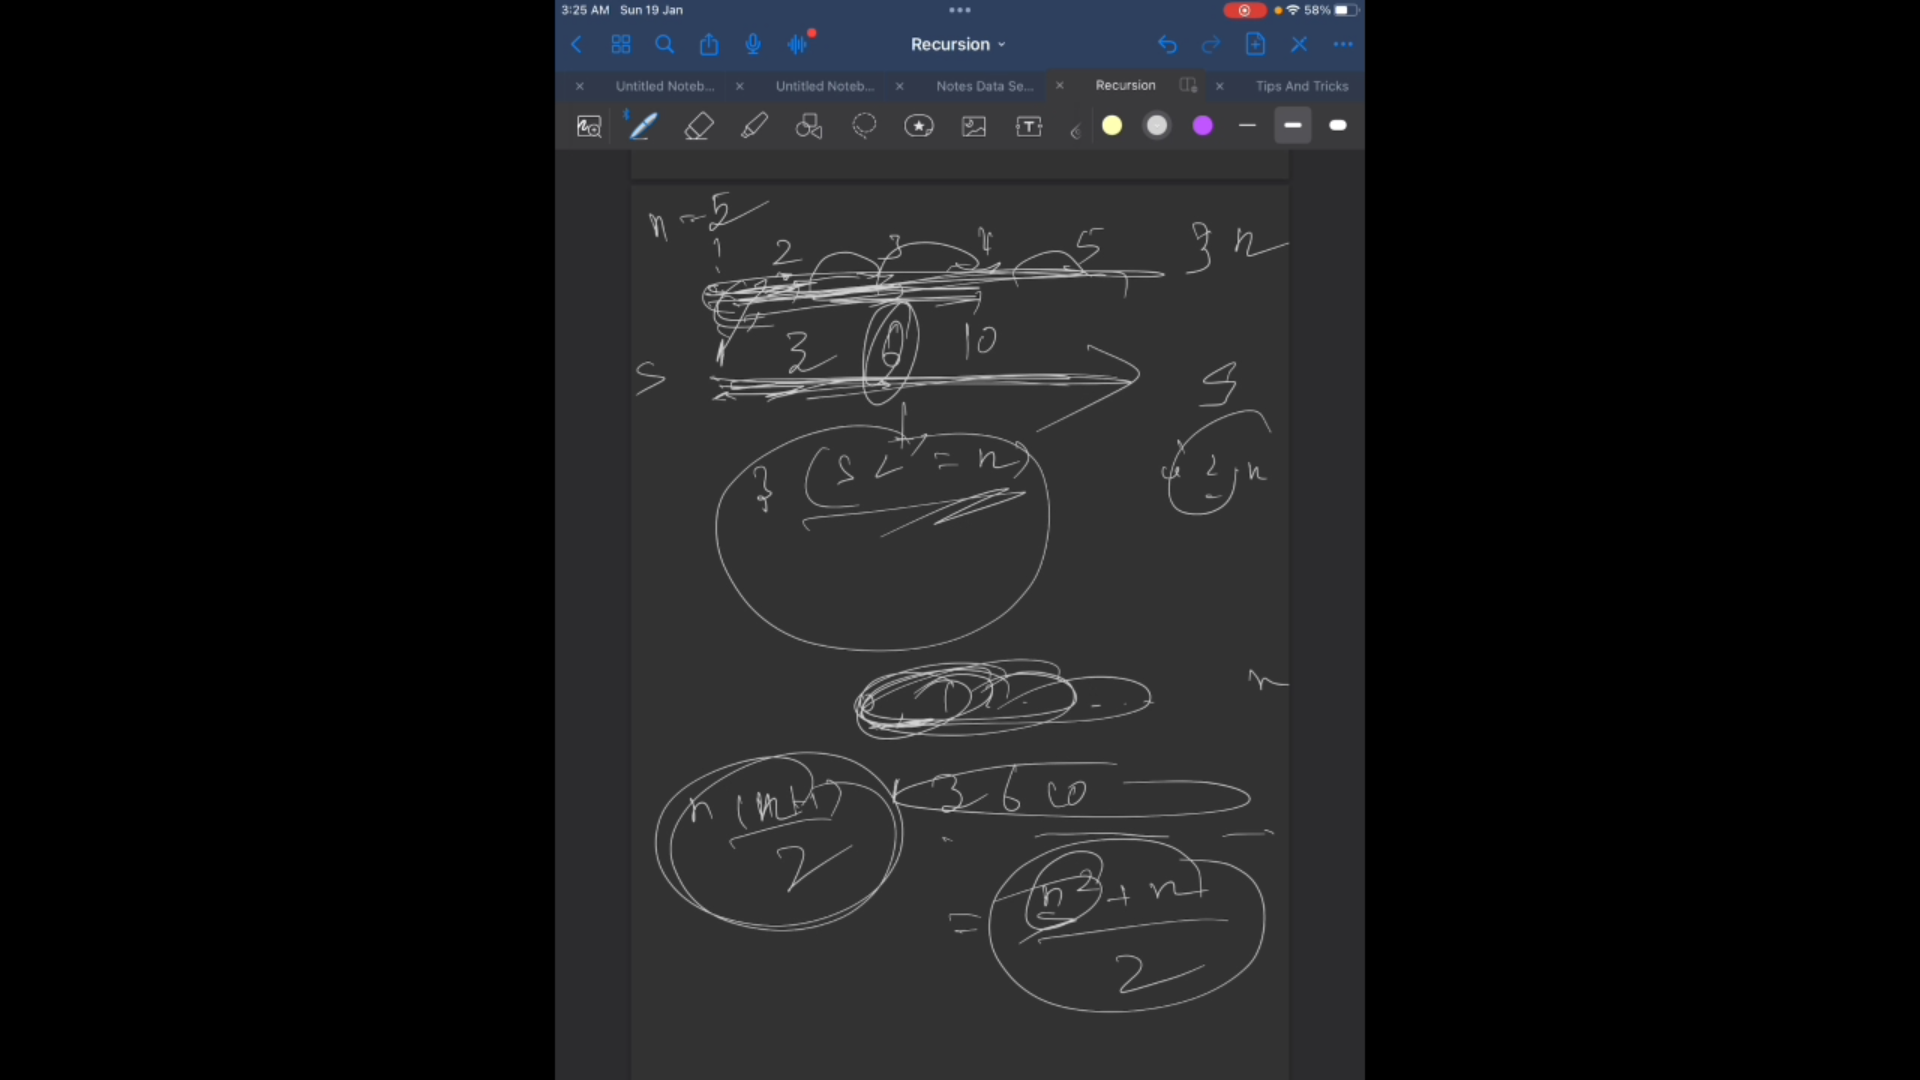 3:25 AM Sun 19 Jan
58%
Recursion
Untitled Noteb...
Untitled Noteb...
Notes Data Se...
Recursion
Tips And Tricks
T
n = 5
1 2 3 4 5 } n
1 3 6 10
S
S
} (S <= n)
n
n (n+1)
2
3 6 10
= n² + n
2